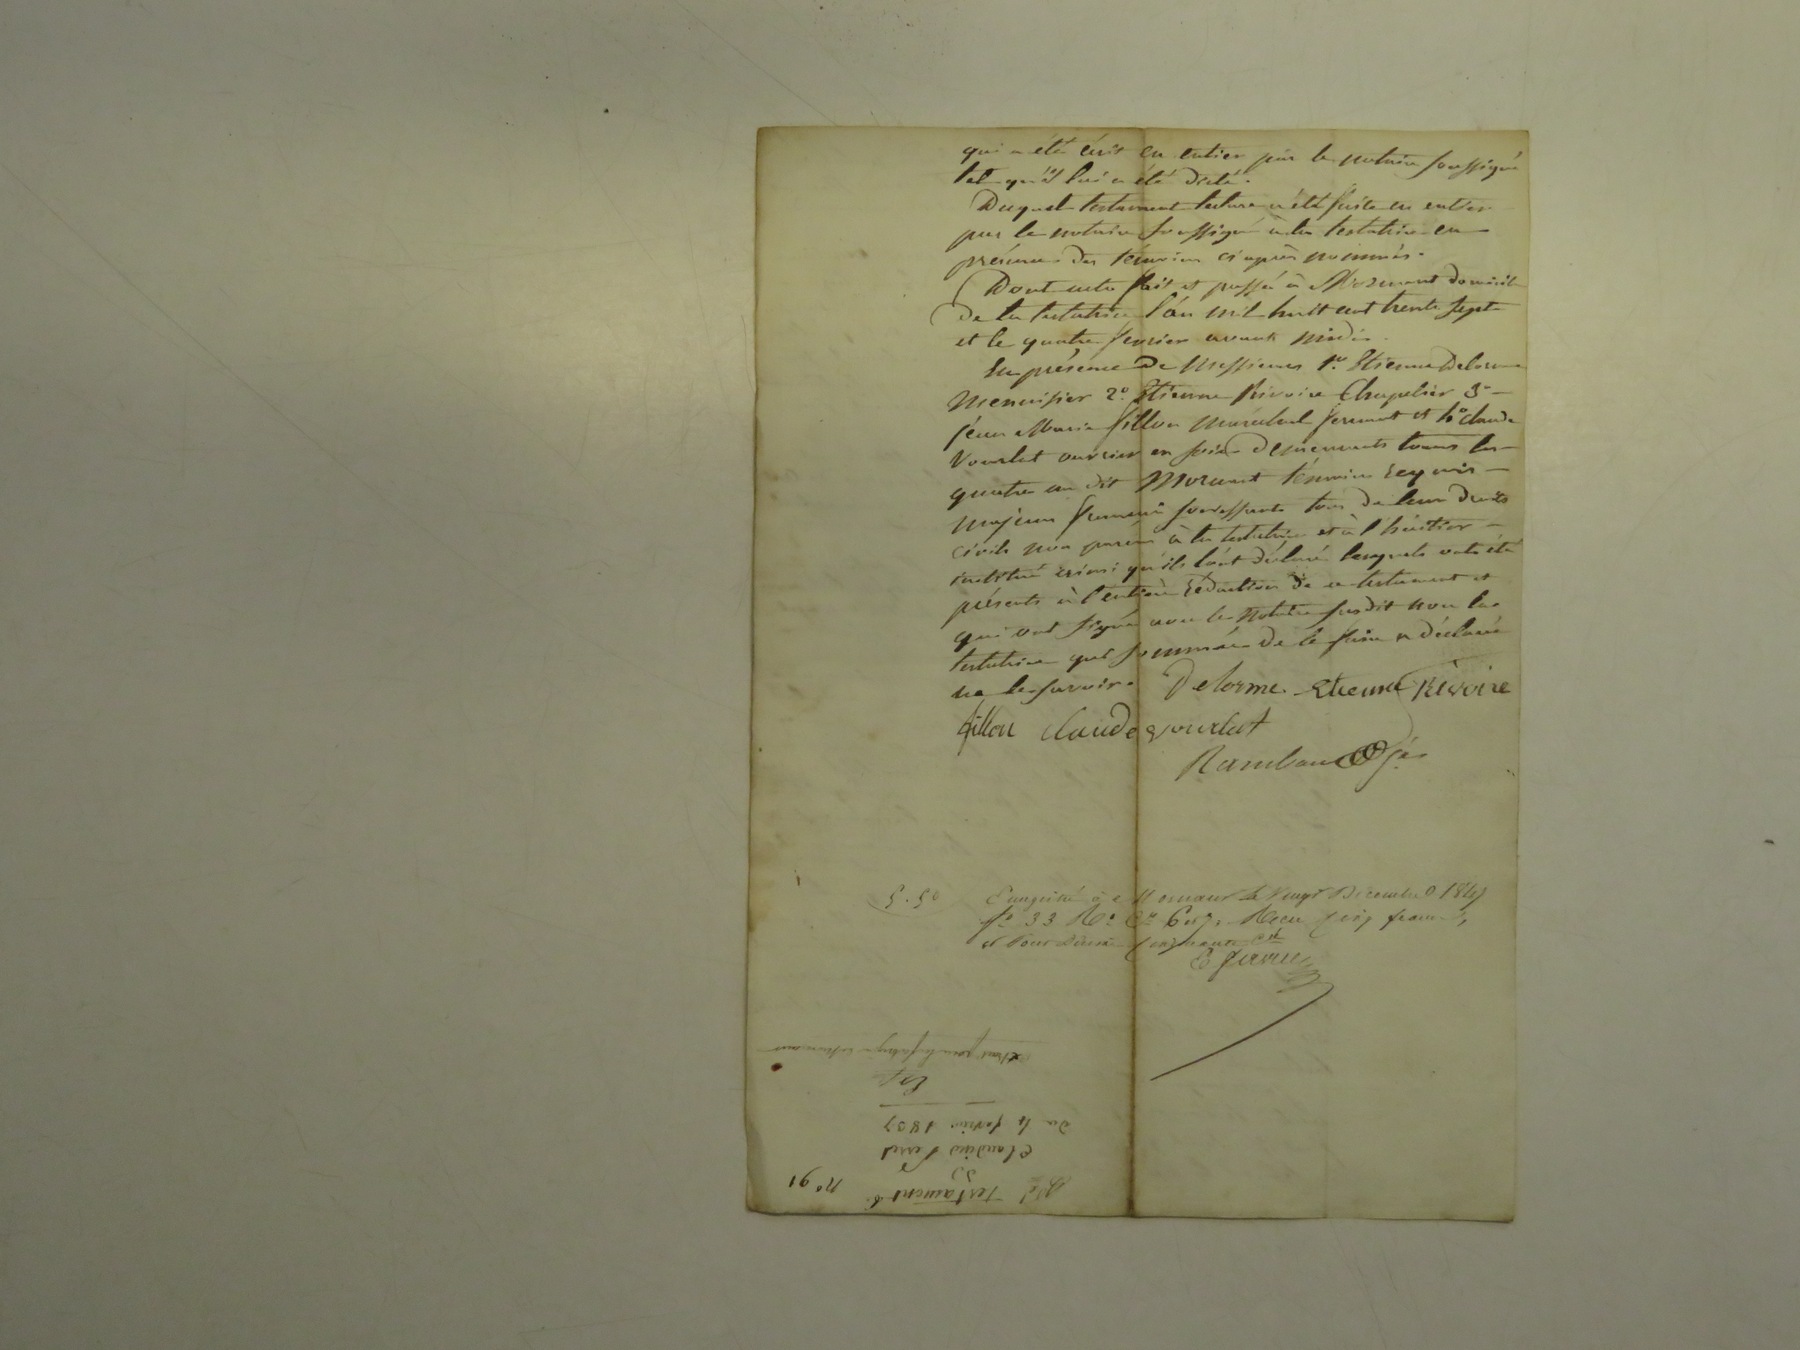 qui a été écrit en entier par le notaire soussigné
tel qu'il lui a été dicté.
Duquel testament lecture a été faite en entier
par le notaire soussigné à la testatrice en
présence des témoins ci après nommés.
Dont acte fait et passé à Mornant domicile
de la testatrice l'an mil huit cent trente sept
et le quatre fevrier avant midi.
En présence de Messieurs 1o. Etienne Delorme
Menuisier 2o. Etienne Rivoire Chapelier 3o
jean Marie fillon maréchal ferrant et 4o claude
Vourlat ouvrier en soie demeurants tous les
quatre au dit Mornant témoins requis
majeurs francais jouissants tous de leurs droits
civils non parens à la testatrice et à l'héritier
institué ainsi qu'ils l'ont déclaré lesquels ont été
présents à l'entière rédaction de ce testament et
qui ont signé avec le notaire susdit non la
testatrice qui sommée de le faire a déclaré
ne le savoir. Delorme Etienne Rivoire
fillon claude vourlat
Rambaud
5.50 Enregistré à Mornant le Vingt Décembre 184
fo 33 Ro Co 6 et 7. Recu cinq francs,
et pour Décime cinquante cmes
No 91
testament
Claudine
du 4 fevrier 1837